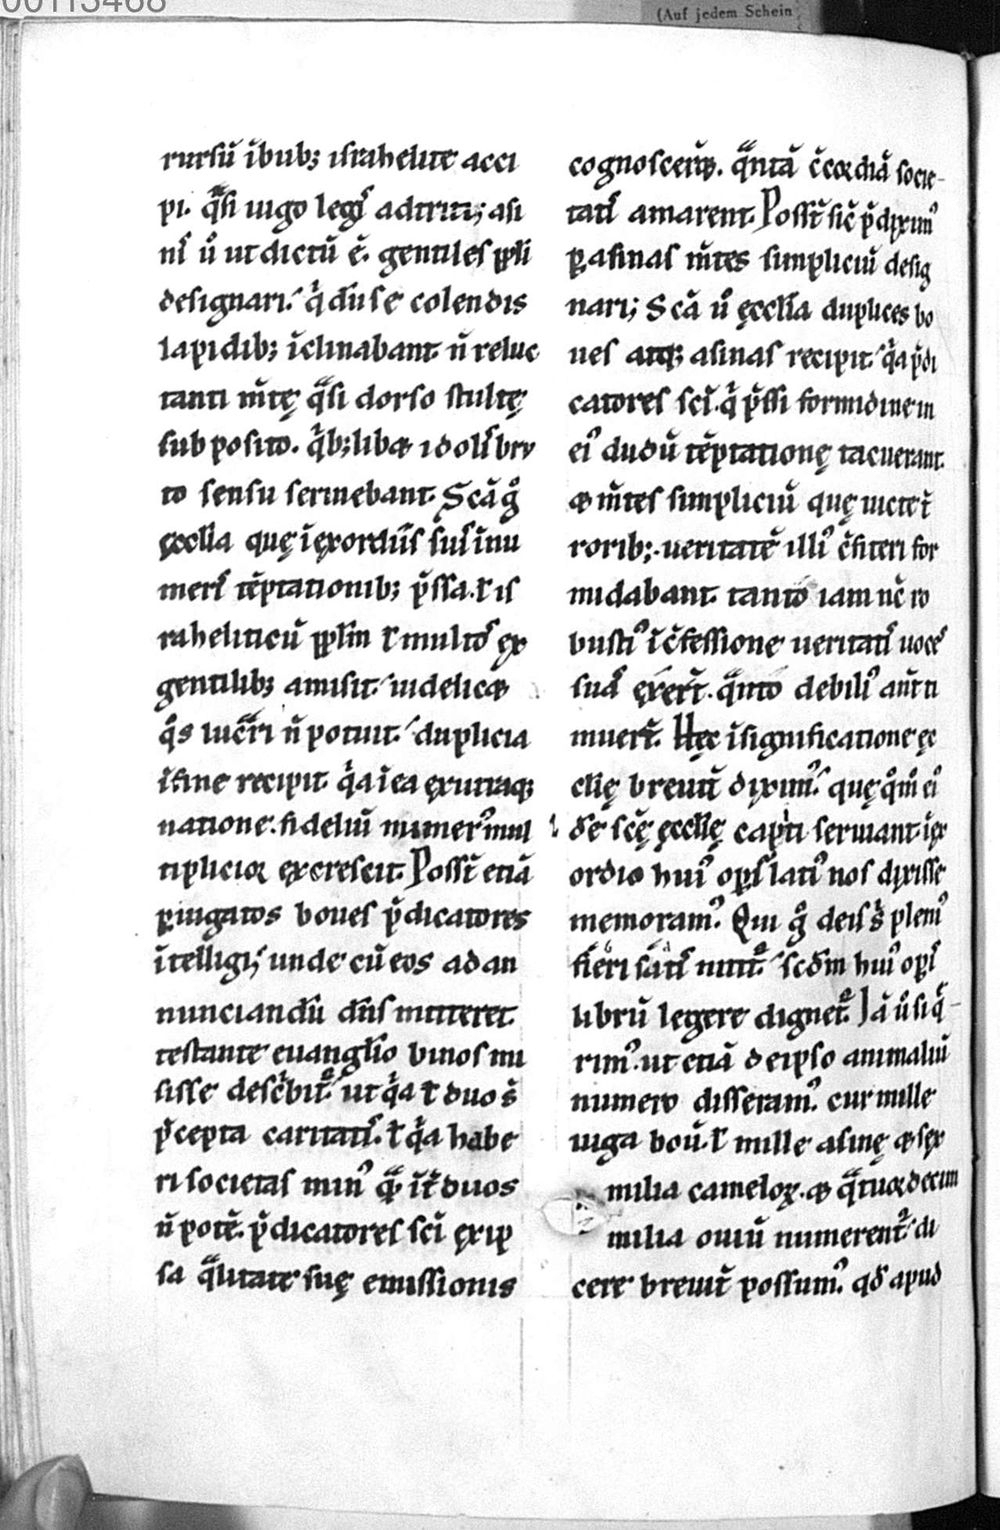 00113468
(Auf jedem Schein
rursū ībub; israhelite acci
pi. q̄si iugo legis adtriti; asi
nis ū ut dictū ē. gentiles ppli
designari. q̄ dū se colendis
lapidib; īclinabant n̄ reluc
tanti m̄te q̄si dorso stulte
subposito. q̄b; libet idolis bru
to sensu seruiebant. Scā g̊
ęcclīa quę ī ęxordiis suis īnu
meris tēptationib; p̄ssa. ł is
raheliticū pplm ł multos ex
gentilib; amisit. uidelicet
q̊s lucrari n̄ potuit. duplicia
ī fine recipit. q̄a ī ea ex utraq;
natione. fideliū numerꝰ mul
tiplicior excrescit. Possūt etiā
p iugatos boues p̄dicatores
ītelligi; unde cū eos ad an
nunciandū dn̄s mitteret.
testante euanglio binos mi
sisse describit̃. ut q̄a ł duo s̄
p̄cepta caritatis. ł q̄a habe
ri societas minꝰ q̄ īt̄ duos
n̄ potē. p̄dicatores sci ex ip
sa q̄litate suę emissionis
cognoscerēt. q̄ntā c̄cordiā socie-
tatis amarent. Possūt sic p̄diximꝰ
p asinas m̄tes simpliciū desig
nari; Scā ū ęcclīa duplices bo
ues atq; asinas recipit. q̄a p̄di
catores sci. q̄ p̄ssi formidine in
eiꝰ dudū tēptatione tacuerant.
et m̄tes simpliciū quę uicte t̄
rorib;. ueritatē illiꝰ c̄fiteri for
midabant. tanto iam nc̄ ro
bustiꝰ ī c̄fessione ueritatis uocē
suā exert̄. q̄nto debiliꝰ ant ti
muert̄. Hęc ī significatione ęc
clię breuit̄ diximꝰ. quę q̊m eiꝰ
de scę ęcclię capiti seruiant. ī ex
ordio huiꝰ opis latiꝰ nos dixisse
memoramꝰ. Qui g̊ deis s̄ plenꝰ
fieri satis nitit̃. scd̄m huiꝰ opis
librū legere dignet̃. Iā ū si q̄-
rimꝰ ut etiā de ipso animaliū
numero disseramꝰ. cur mille
iuga boū. ł mille asinę et sex
milia camelorum. et q̄tuordecim
milia ouiū numerent̃. di
cere breuit̄ possumꝰ. qd apud